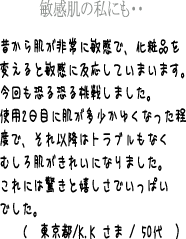 敏感肌の私にも‥
昔から肌が非常に敏感で、化粧品を
変えると敏感に反応していまいます。
今回も恐る恐る挑戦しました。
使用2日目に肌が多少かゆくなった程
度で、それ以降はトラブルもなく
むしろ肌がきれいになりました。
これには驚きと嬉しさでいっぱい
でした。
( 東京都/K.K さま / 50代 )